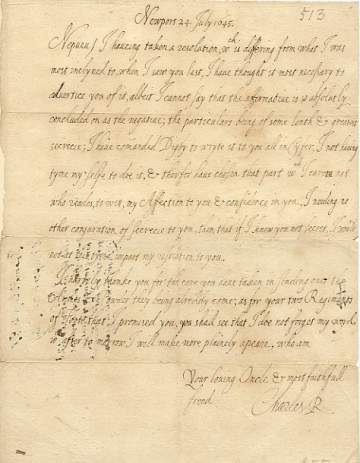 Newport 24. July 1645.
513
Nepueu / I haueing taken a resolution, wch is differing from what I was
most inclyned to, when I saw you last, I haue thought it most necessary to
aduertice you of it, albeit I cannot say that the affirmatiue is so absolutly
concluded on as the negatiue; the particulars being of some lenth & greatest
secrecie; I haue comanded Digby to wryte it to you all in Cypher, I not hauing
tyme my selfe to doe it, & therfor haue chosen that part wch I caire not
who reades, to wit, my Affection to you & confidence in you, I needing no
other conjuration of secrecie to you, then that if I knew you not secret, I would
not at this tyme impart my resolution to you.
I hartely thanke you for the care you haue taken in sending
they being already come; as for your two Regiments
of that I promised you, you shall see that I doe not forget my word,
after to morrow I will make more plainely apeare, who am
Your louing Oncle & most faithfull
frend
Charles R.